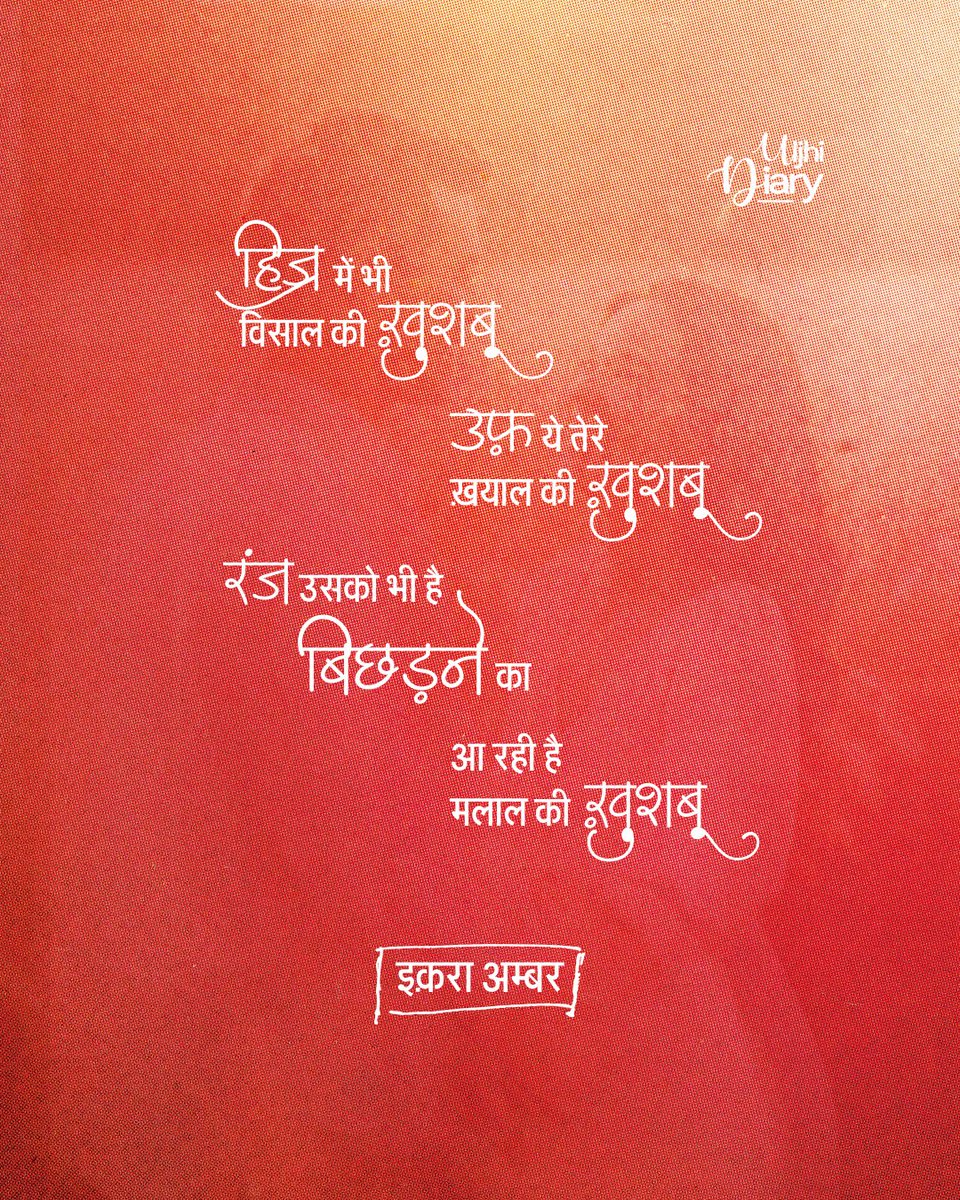 Uljhi
Diary
हिज्र में भी
विसाल की ख़ुशबू
उफ़ ये तेरे
ख़याल की ख़ुशबू
रंज उसको भी है
बिछड़ने का
आ रही है
मलाल की ख़ुशबू
इक़रा अम्बर